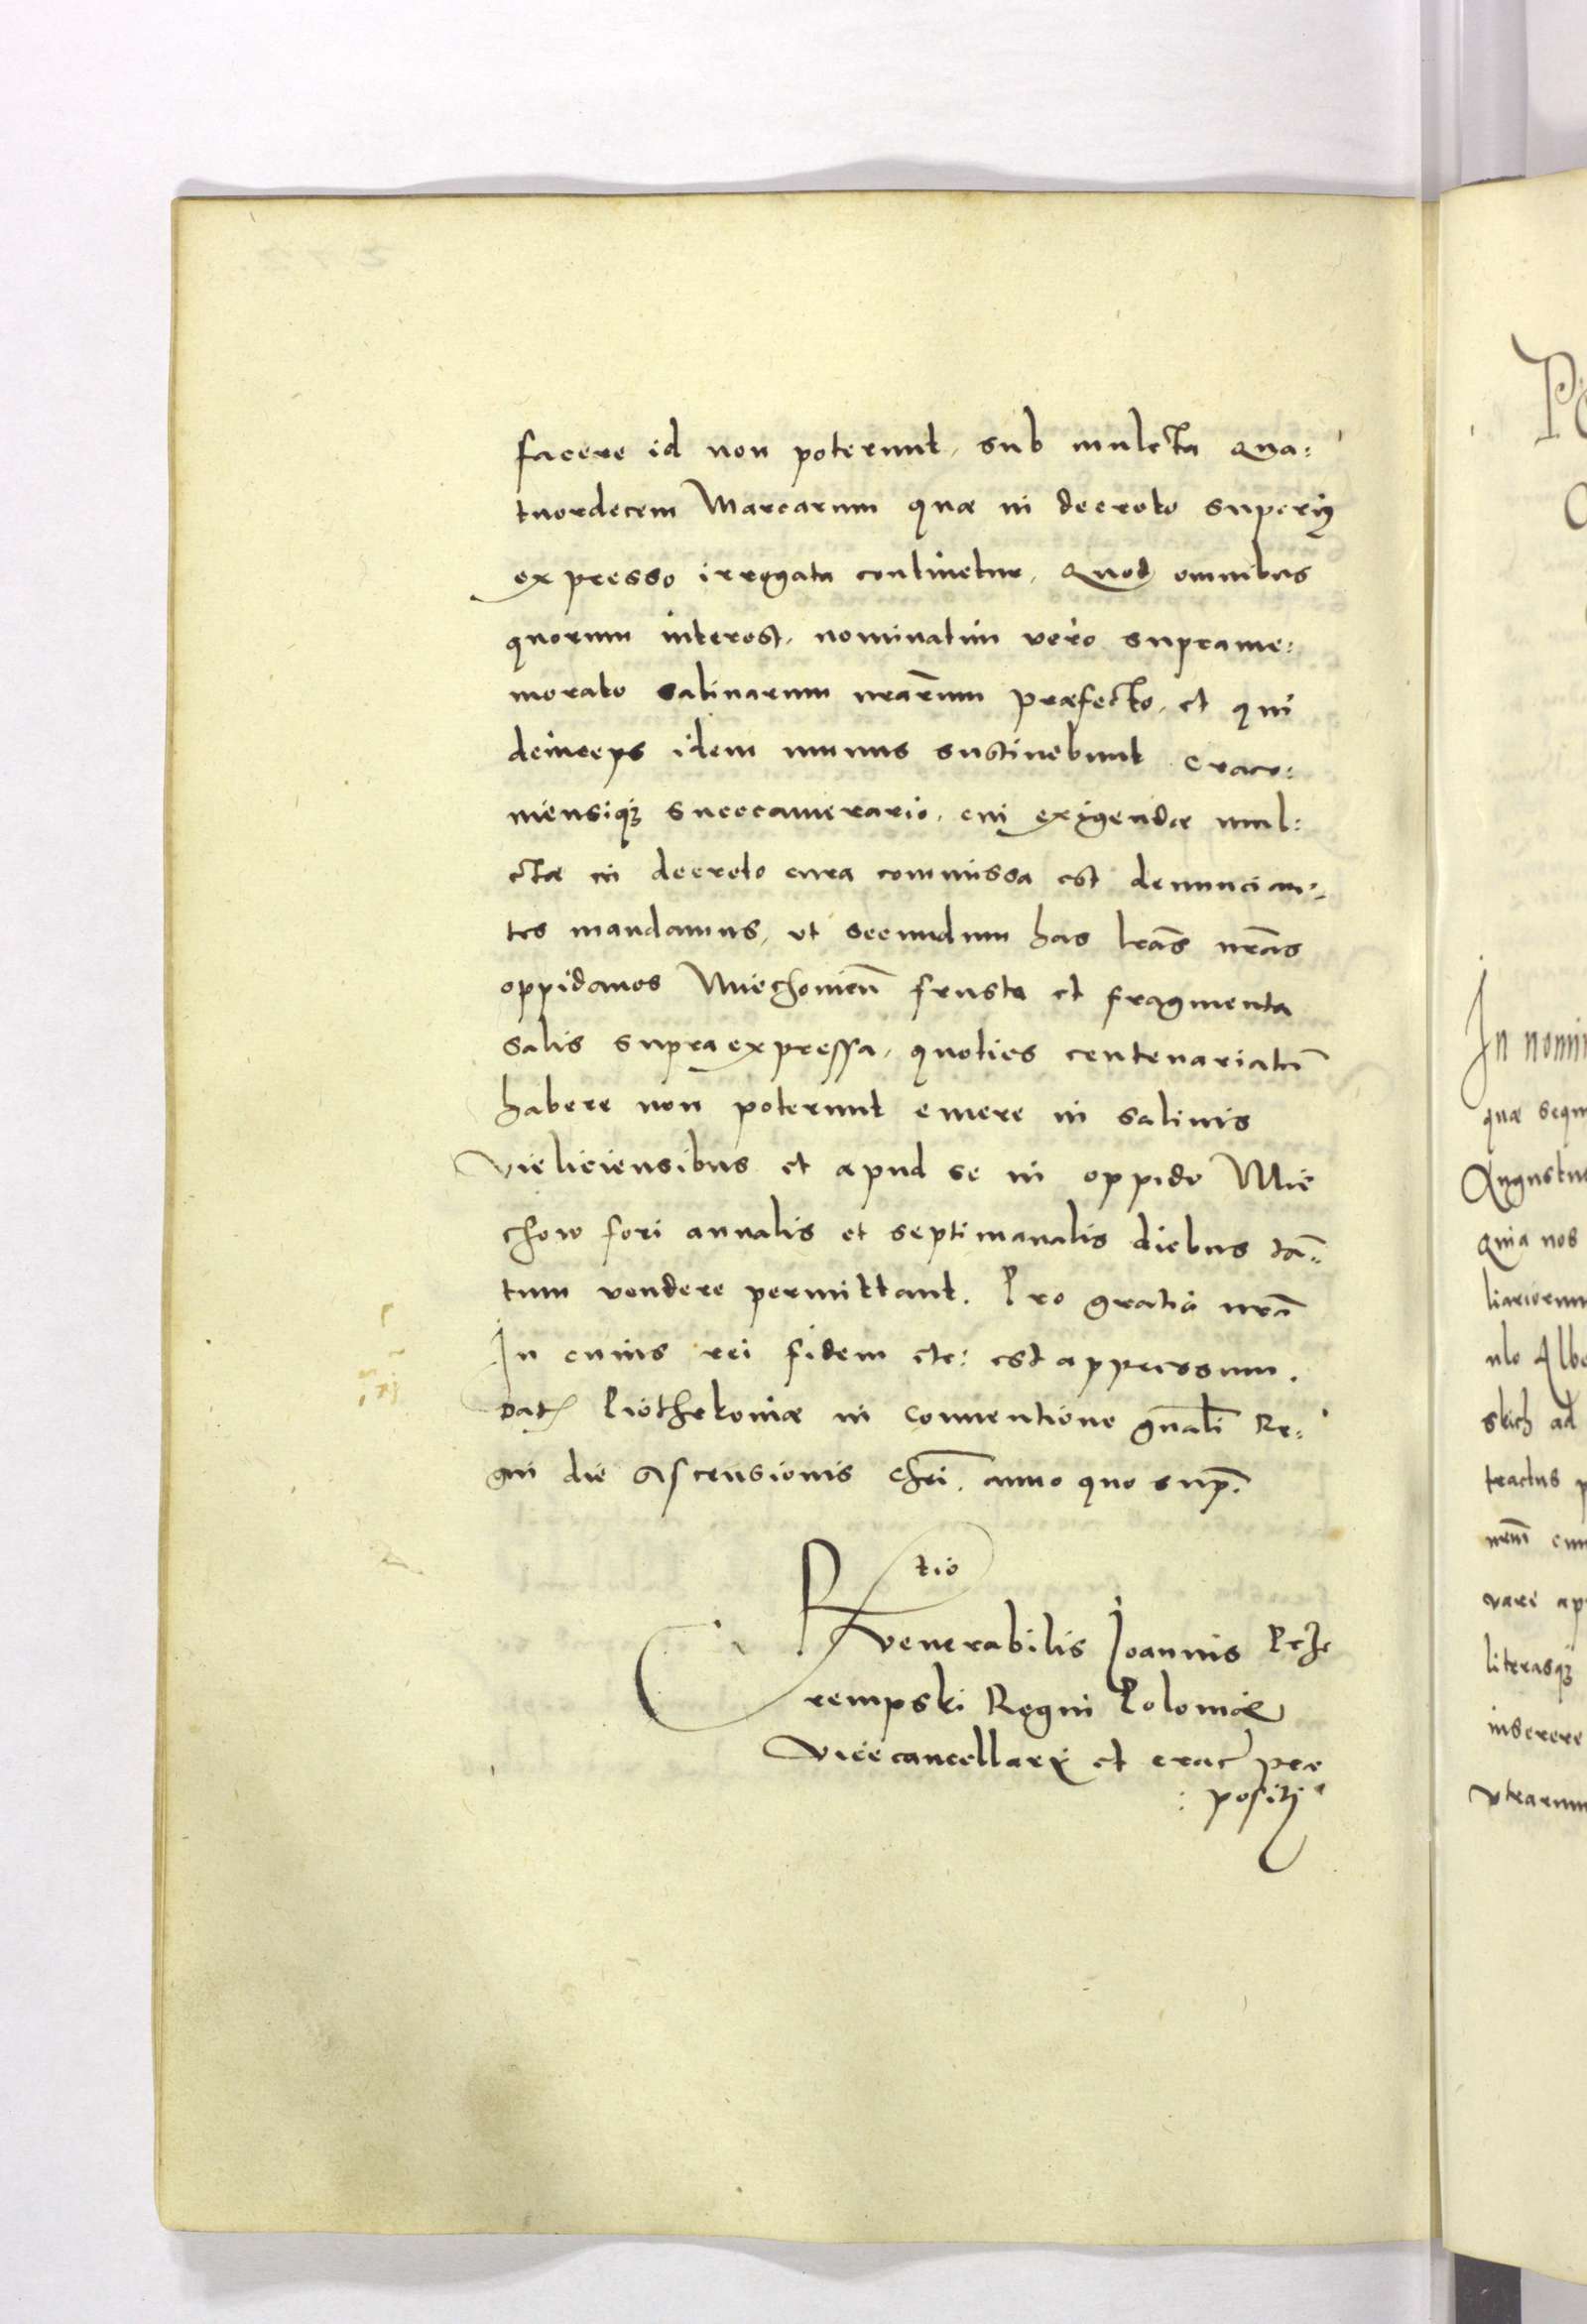 facere id non poterunt, sub mulcta Qua:
tuordecem Marcarum quæ in decreto superiꝰ
expresso irrogata continetur. Quod omnibus
quorum interest, nominatim vero suprame:
morato salinarum nr̄arum præfecto, et qui
deinceps idem munus sustinebunt craco:
niensiqꝫ succamerario, cui exigendæ mul:
ctæ in decreto cura commissa est denuncian:
tes mandamus, ut secundum has lr̄as nr̄as
oppidanos Miechovien̄ frusta et fragmenta
salis supraexpressa, quoties centenariatū
habere non poterunt emere in salinis
Vieliciensibus et apud se in oppido Mie
chow fori annalis et septimanalis diebus tā:
tum vendere permittant. Pro gratia nr̄a
In cuius rei fidem etc: est appressum.
Dat Piothrkoviæ in Conventione gn̄ali Re:
gni die Ascensionis Chr̄i. anno quo sup̄.
Rtio
venerabilis Joannis Prze
rempski Regni Poloniæ
Vicecancellarÿ et crac præ
: positi
Po
In nomi
quæ sequ
Augustu
Quia nos
liariorum
ulo Albe
skich ad
tractus p
nr̄m cum
vari ap
literasqꝫ
inserere
Utrarum